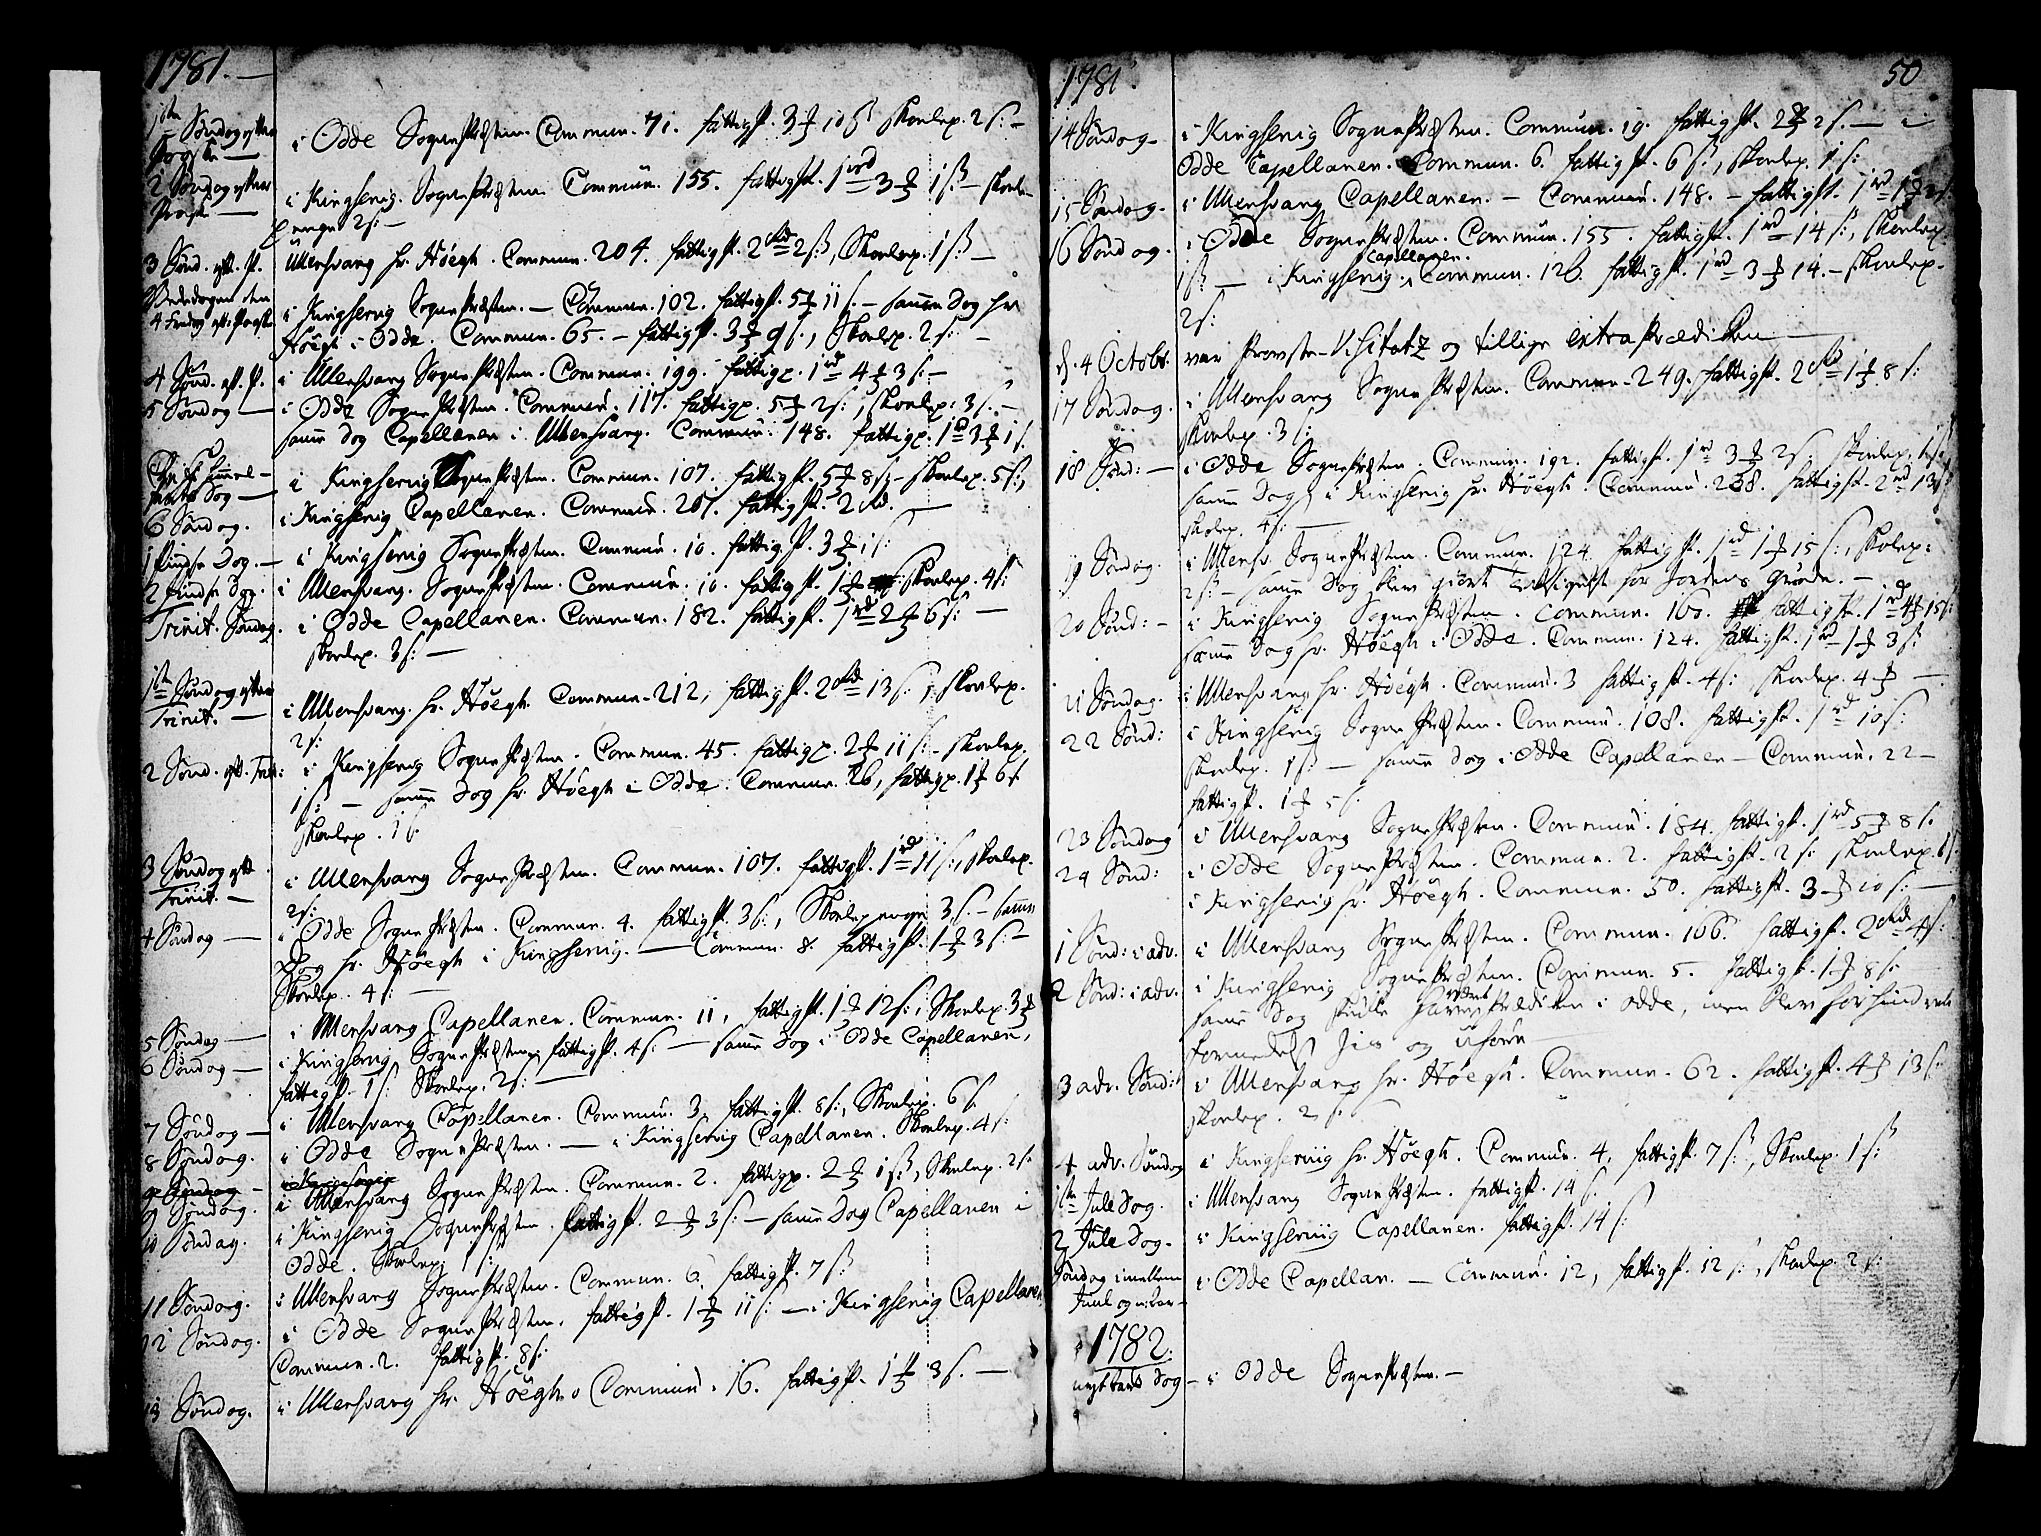 1781.
1ste Søndag efter
Paasche —
i Odde SognePræsten. Commun. 71. fattigp. 3 ℔ 10 ß Skolep. 2 ß: —
2 Søndag efter
Paask —
i Kingservig. SognePræsten. Commun. 155. fattigp. 1 rd 3 ℔ 1 ß: — Skole-
penge 2 ß: —
3 Sønd. eft. P.
Ullensvang hr. Höegh. Commun. 204. fattigp. 2 rd 2 ß:, Skolep. 1 ß: —
Bededagen den
4 Fredag eft. Paaske
i Kingservig SognePræsten. — Commun. 102. fattigp. 5 ℔ 11 ß. — samme Dag hr
Höegh i Odde. Commun. 65. — fattigp. 3 ℔ 9 ß., Skolep. 2 ß: —
4 Sønd. eft. P.
i Ullensvang SognePræsten. Commun. 199. fattigp. 1 rd 4 ℔ 3 ß: —
5 Søndag —
i Odde SognePræsten. Commun. 117. fattigp. 5 ℔ 2 ß:, Skolep: 3 ß. —
samme Dag Capellanen i Ullensvang. Commun: 148. fattigp: 1 rd 3 ℔ 1 ß.
Christi Himmel-
farts Dag —
i Kingservig SognePræsten. Commun. 107. fattigp. 5 ℔ 8 ß: — Skolep. 5 ß:,
6 Søndag.
i Kingservig Capellanen. Commun. 207. fattigp. 2 rd. —
1 Pindse Dag. —
i Kingservig SognePræsten. Commun. 10. fattigp. 3 ℔ 1 ß:
2 Pindse Dag.
i Ullensvang. SognePræsten. Commun. 10. fattigp. 1 ℔ Skolep. 4 ß:
Trinit. Søndag.
i Odde Capellanen. Commun. 182. fattigp. 1 rd 2 ℔ 6 ß: —
Skolep. 3 ß: —
1ste Søndag efter
Trinit. —
i Ullensvang. hr. Höegh. Commun. 212, fattigp. 2 rd 13 ß:, Skolep.
2 ß:
2 Sønd. eft. Trin:
i Kingservig SognePræsten. Commun. 45. fattigp. 2 ℔ 11 ß: — Skolep.
1 ß: — samme Dag hr. Höegh i Odde. Commun. 26, fattigp. 1 ℔ 6 ß
Skolep. 1 ß
3 Søndag eft
Trinit. —
i Ullensvang SognePræsten. Commun. 107. fattigp. 1 rd 11 ß:, Skolep.
2 ß:
4 Søndag —
i Odde SognePræsten. Commun. 4. fattigp. 3 ß:, Skolepenge 3 ß. — samme
Dag hr. Höegh i Kingservig. — Commun. 8. fattigp. 1 ℔ 3 ß: —
Skolep. 4 ß: —
5 Søndag —
i Ullensvang Capellanen. Commun. 11, fattigp. 1 ℔ 12 ß:, Skolep. 3 ℔
6 Søndag —
i Kingservig SognePræsten, fattigp. 4 ß: — samme Dag i Odde Capellanen,
fattigp. 1 ß: Skolep. 2 ß: —
7 Søndag —
i Ullensvang Capellanen. Commun. 3. fattigp. 8 ß:, Skolep. 6 ß
8 Søndag.
i Odde SognePræsten. — i Kingservig Capellanen. Skolep. 4 ß:
9 Søndag —
i Kingservig
9 Søndag.
i Ullensvang SognePræsten. Commun. 2. fattigp. 2 ℔ 1 ß:, Skolep. 2 ß:
10 Søndag.
i Kingservig SognePræsten. fattigp. 2 ℔ 3 ß: — samme Dag Capellanen i
Odde. Skolep. 1 ß:
11 Søndag.
i Ullensvang SognePræsten. Commun. 6. fattigp. 7 ß:
12 Søndag.
i Odde SognePræsten. fattigp. 1 ℔ 11 ß: — i Kingservig Capellanen
Commun. 2. fattigp. 8 ß:
13 Søndag.
i Ullensvang hr. Höegh. Commun. 16. fattigp. 1 ℔ 3 ß. —
1781
50
14 Søndag —
i Kingservig SognePræsten. Commun. 19. fattigp. 2 ℔ 2 ß. — i
Odde Capellanen. Commun. 6. fattigp. 6 ß:, Skolep. 1 ß:
15 Søndag.
i Ullensvang Capellanen. — Commun. 148. — fattigp. 1 rd 1 ℔ 2 ß:
16 Søndag.
i Odde SognePræsten. Commun. 155. fattigp. 1 rd 14 ß:, Skolep.
1 ß — i Kingservig Capellanen. Commun. 126. fattigp. 1 rd 3 ℔ 14. — Skolep.
2 ß:
d. 4 Octobr.
var Provste-Visitatz og tillige extra Prædiken —
17 Søndag.
i Ullensvang SognePræsten. Commun. 249. fattigp. 2 rd 1 ℔ 8 ß:
Skolep. 3 ß:
18 Sønd: —
i Odde SognePræsten. Commun. 192. fattigp. 1 rd 3 ℔ 2 ß: Skolep.
samme Dag i Kingservig hr. Höegh. Commun. 238. fattigp. 2 rd 13 ß
Skolep. 4 ß: —
19 Søndag.
i Ullensv SognePræsten. Commun. 124. fattigp. 1 rd 1 ℔ 15 ß:, Skolep:
2 ß: — samme Dag blev giort Taksigelse for Jordens Grøde. —
20 Sønd: —
i Kingservig SognePræsten. Commun. 160. fattigp. 1 rd 4 ℔ 15 ß:
samme Dag hr. Höegh i Odde. Commun. 124. fattigp. 1 rd 1 ℔ 3 ß
21 Søndag.
i Ullensvang hr. Höegh. Commun. 3 fattigp. 4 ß: Skolep. 4 ℔ —
22 Sønd:
i Kingservig SognePræsten. Commun. 108. fattigp. 1 rd 10 ß:
Skolep. 1 ß — samme Dag i Odde Capellanen — Commun. 22 —
fattigp. 1 ℔ 5 ß.
23 Søndag
i Ullensvang SognePræsten. Commun. 184. fattigp. 1 rd 5 ℔ 8 ß.
24 Sønd:
i Odde SognePræsten. Commun. 2. fattigp. 2 ß: Skolep. 6 ß:
i Kingservig hr. Höegh. Commun. 50. fattigp. 3 ℔ 10 ß: —
1 Sønd: i adv.
i Ullensvang SognePræsten. Commun. 106. fattigp. 2 rd 4 ß:
2 Sønd: i adv.
i Kingservig SognePræsten. Commun. 5. fattigp. 1 ℔ 8 ß.
samme Dag skulle have været Prædiken i Odde, men blev forhindret
formedelst Jis og Uføre —
3 adv. Sønd:
i Ullensvang hr. Höegh. Commun. 62. fattigp. 4 ℔ 13 ß:
Skolep. 2 ß:
4 adv. Søndag
i Kingserviig hr. Höegh. Commun. 4, fattigp. 7 ß:, Skolep. 1 ß:
1ste Jule Dag.
i Ullensvang SognePræsten. fattigp. 14 ß.
2 Jule Dag.
i Kingserviig Capellanen. fattigp. 14 ß:
Søndag imellem
Juul og nytaar —
i Odde Capellan. — Commun. 12, fattigp. 12 ß:, Skolep. 2 ß:
1782.
nyt taars Dag —
i Odde SognePræsten. —